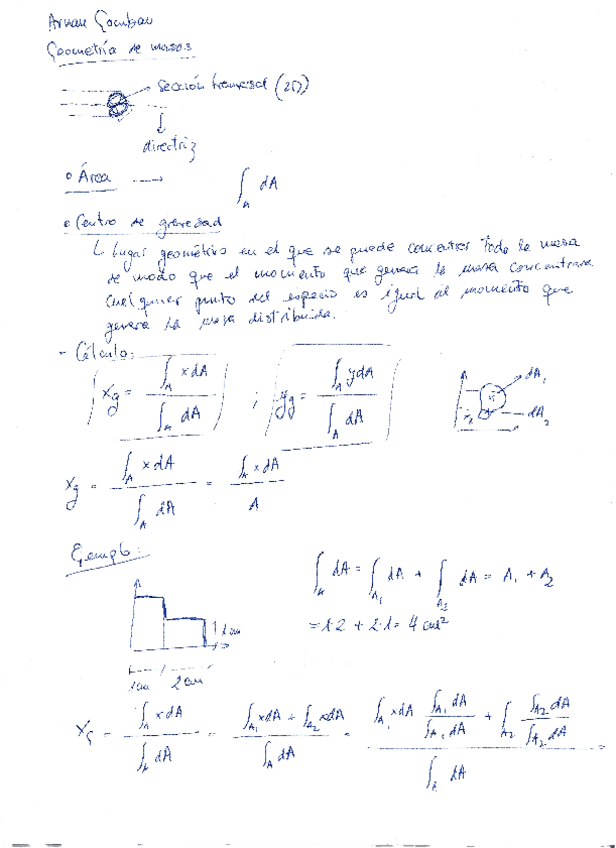 Geometría de masas
sección transversal (2D)
directriz
• Área → ∫_A dA
• Centro de gravedad
↳ lugar geométrico en el que se puede concentrar toda la masa
de modo que el momento que genera la masa concentrada
cualquier punto del espacio es igual al momento que
genera la masa distribuida.
- Cálculo:
x_g = ∫_A x dA / ∫_A dA ; y_g = ∫_A y dA / ∫_A dA
dA₁
dA₂
x_g = ∫_A x dA / ∫_A dA = ∫_A x dA / A
Ejemplo:
∫_A dA = ∫_A₁ dA + ∫_A₂ dA = A₁ + A₂
= 1·2 + 2·1 = 4 cm²
1 cm
1cm 2cm
x_G = ∫_A x dA / ∫_A dA = (∫_A₁ x dA + ∫_A₂ x dA) / ∫_A dA = (∫_A₁ x dA ∫_A₁ dA / ∫_A₁ dA + ∫_A₂ ∫_A₂ dA / ∫_A₂ dA) / ∫_A dA =